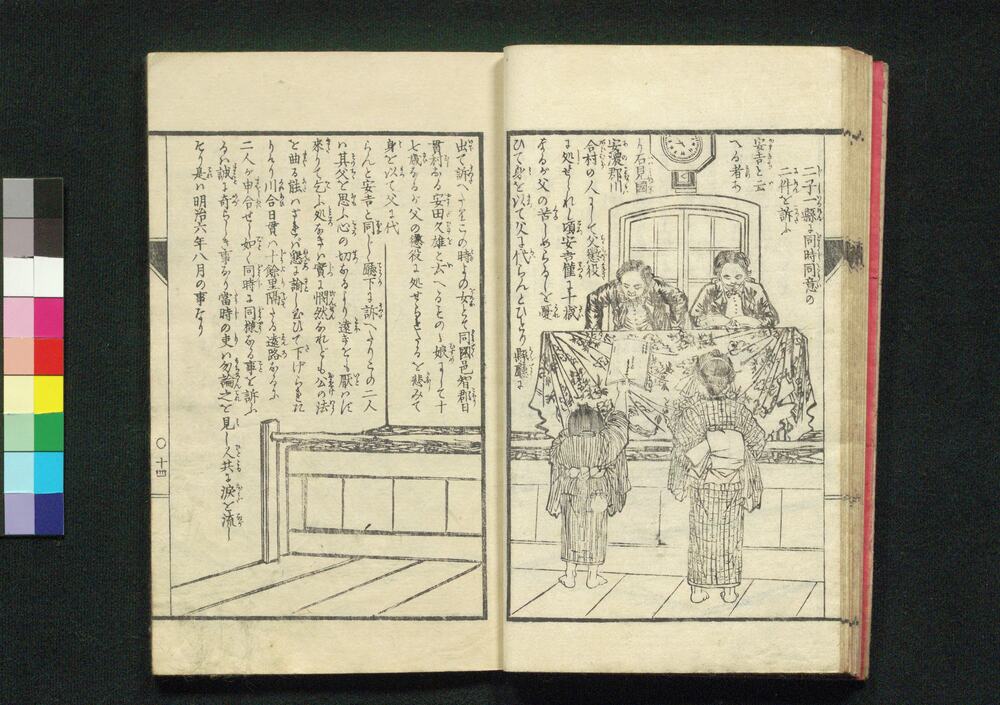 二子一縣に同時同意の
二件を訴ふ
安吉と云
へる者あ
り石見國
安濃郡川
合村の人にして父懲役
に処せられし頃安吉僅に十歳
なるが父の苦しめらるゝを憂
ひて身を以て父に代らんとひとり縣廳に
出て訴へけりこの時また女とて同國邑智郡日
貫村なる安田久雄と云へるものゝ娘にして十
七歳なるが父の懲役に処せられたるを悲みて
身を以て父に代
らんと安吉と同じ廳下に訴へたりこの二人
ハ其父を思ふ心の切なるより遠きをも厭はず
來りて乞ふ処なき實に憫然なれども公の法
を曲る能はざれバ懇に諭し玉ひて下げられた
りけり川合日貫ハ十餘里隔たる遠路なるに
二人が申合せし如く同時に同様なる事を訴ふ
るハ誠に奇らしき事なり當時の吏ハ勿論之を見し人共に涙を流し
たり是ハ明治六年八月の事なり
○十四